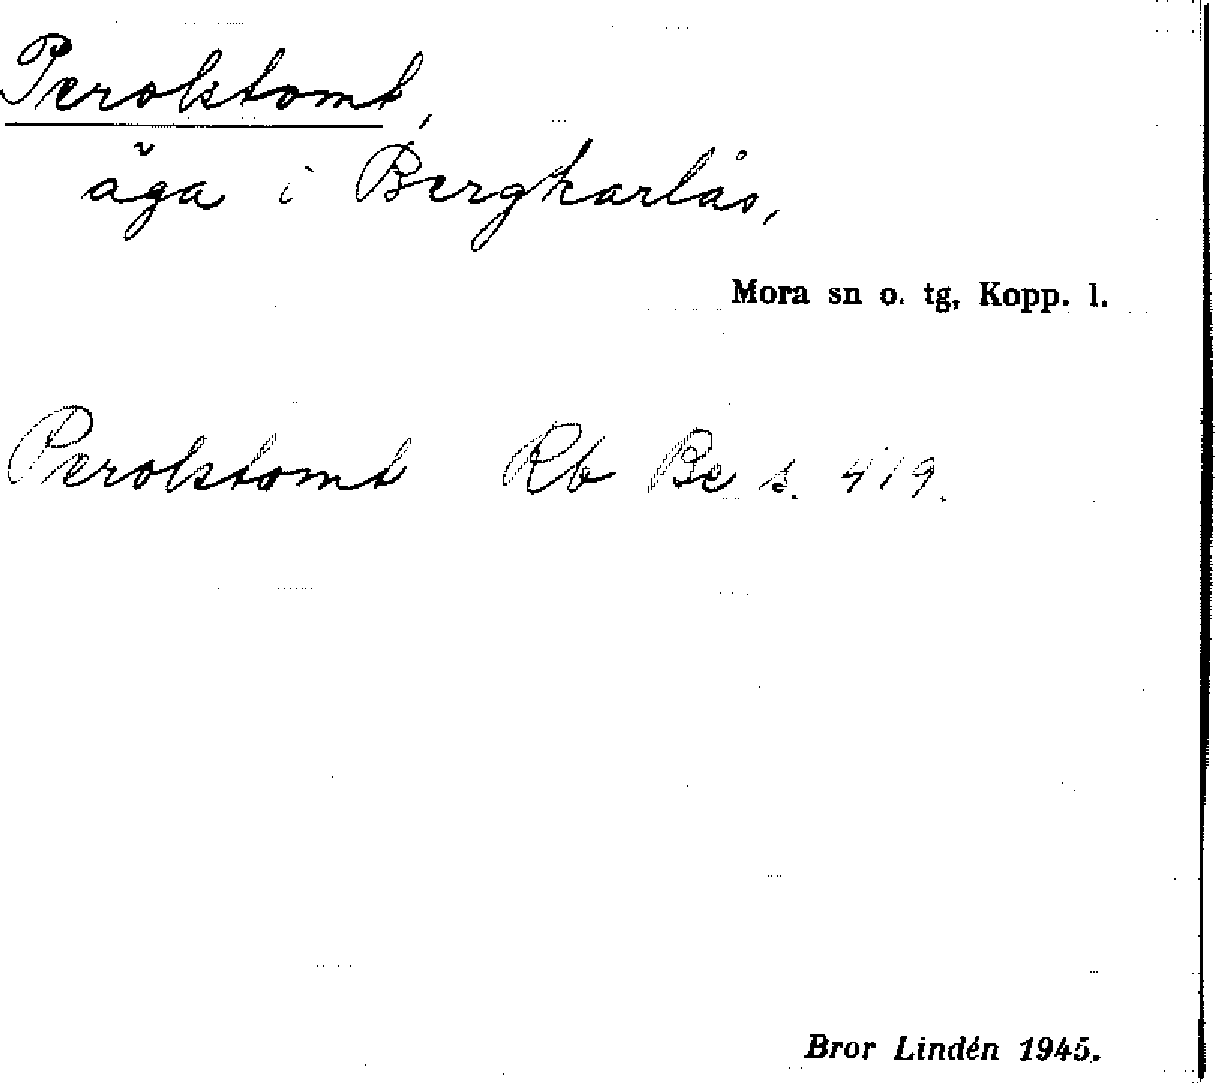 Perolstomt,
äga i Bergkarlås,
Mora sn o. tg, Kopp. l.
Perolstomt Rb Be s. 419.
Bror Lindén 1945.